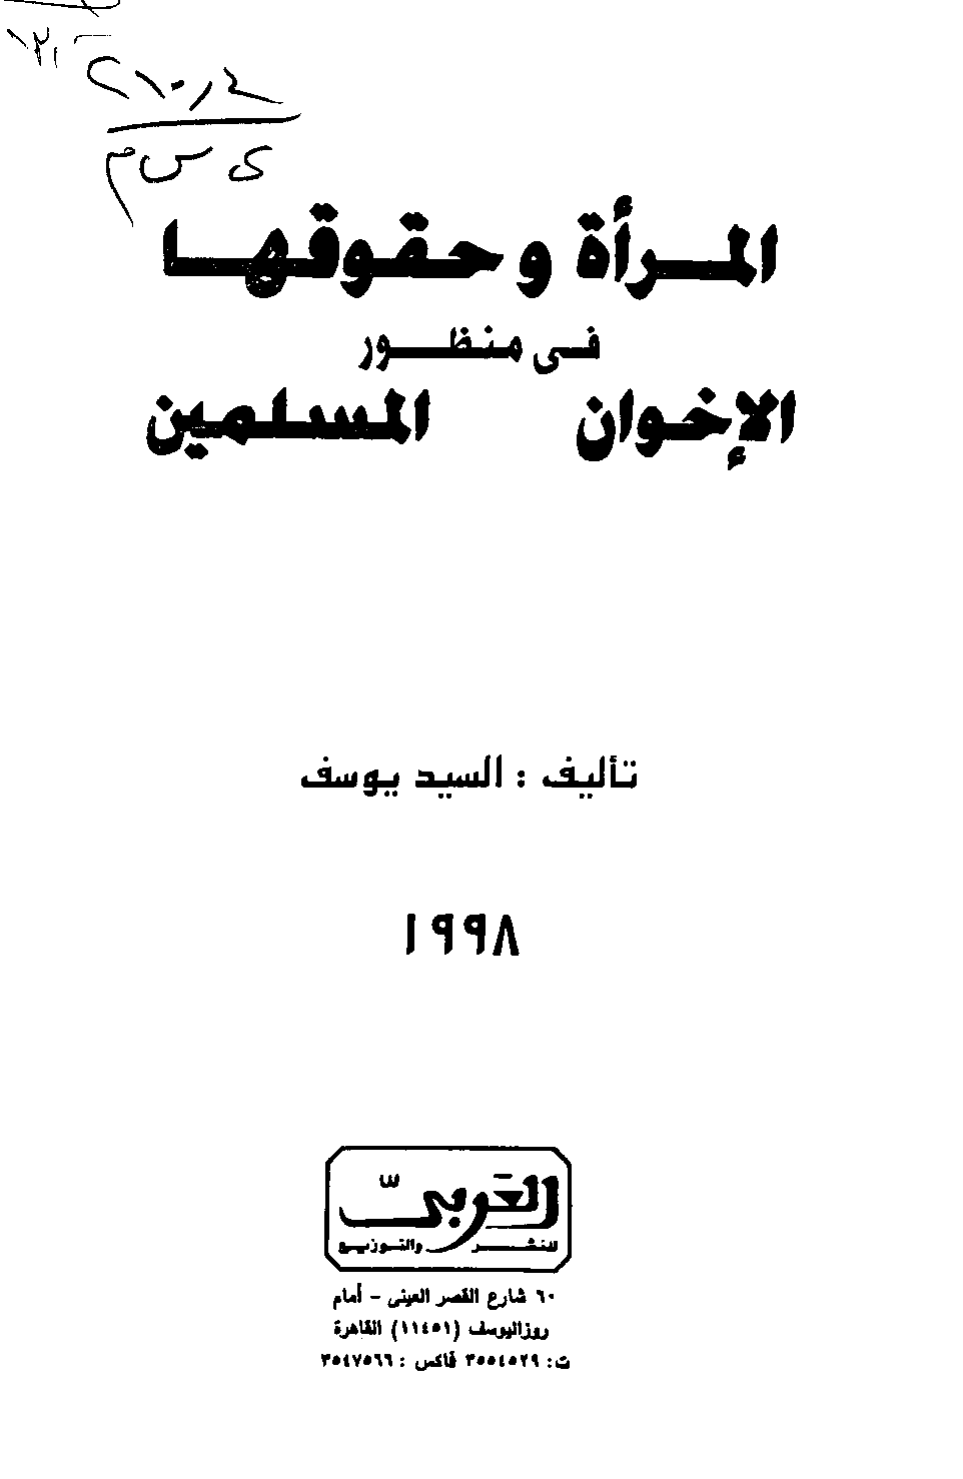 المرأة وحقوقها
فى منظور
الإخوان المسلمين
تأليف : السيد يوسف
١٩٩٨
العربى
للنشر والتوزيع
٦٠ شارع القصر العينى - أمام
روزاليوسف (١١٤٥١) القاهرة
ت: ٣٥٥٤٥٢٩ فاكس : ٣٥٤٧٥٦٦